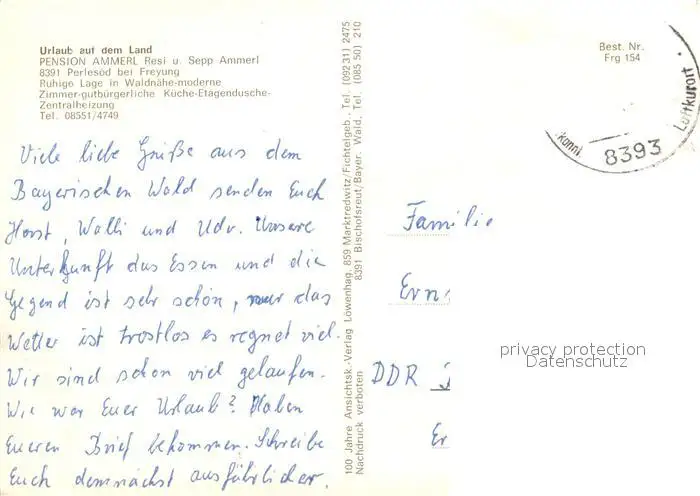 Urlaub auf dem Land
PENSION AMMERL Resi u. Sepp Ammerl
8391 Perlesöd bei Freyung
Ruhige Lage in Waldnähe-moderne
Zimmer-gutbürgerliche Küche-Etagendusche-
Zentralheizung
Tel. 08551/4749
Viele liebe Grüße aus dem
Bayerischen Wald senden Euch
Horst, Walli und Udo. Unsere
Unterkunft das Essen und die
Gegend ist sehr schön, nur das
Wetter ist trostlos es regnet viel.
Wir sind schon viel gelaufen.
Wie war Euer Urlaub? Haben
Eueren Brief bekommen. Schreibe
Euch demnächst ausführlicher.
100 Jahre Ansichtsk.-Verlag Löwenhag, 859 Marktredwitz/Fichtelgeb., Tel. (092 31) 2475
Nachdruck verboten 8391 Bischofsreut/Bayer. Wald, Tel. (085 50) 210
Best. Nr.
Frg 154
8393
Luftkurort
Familie
Ern
DDR
Er
privacy protection
Datenschutz